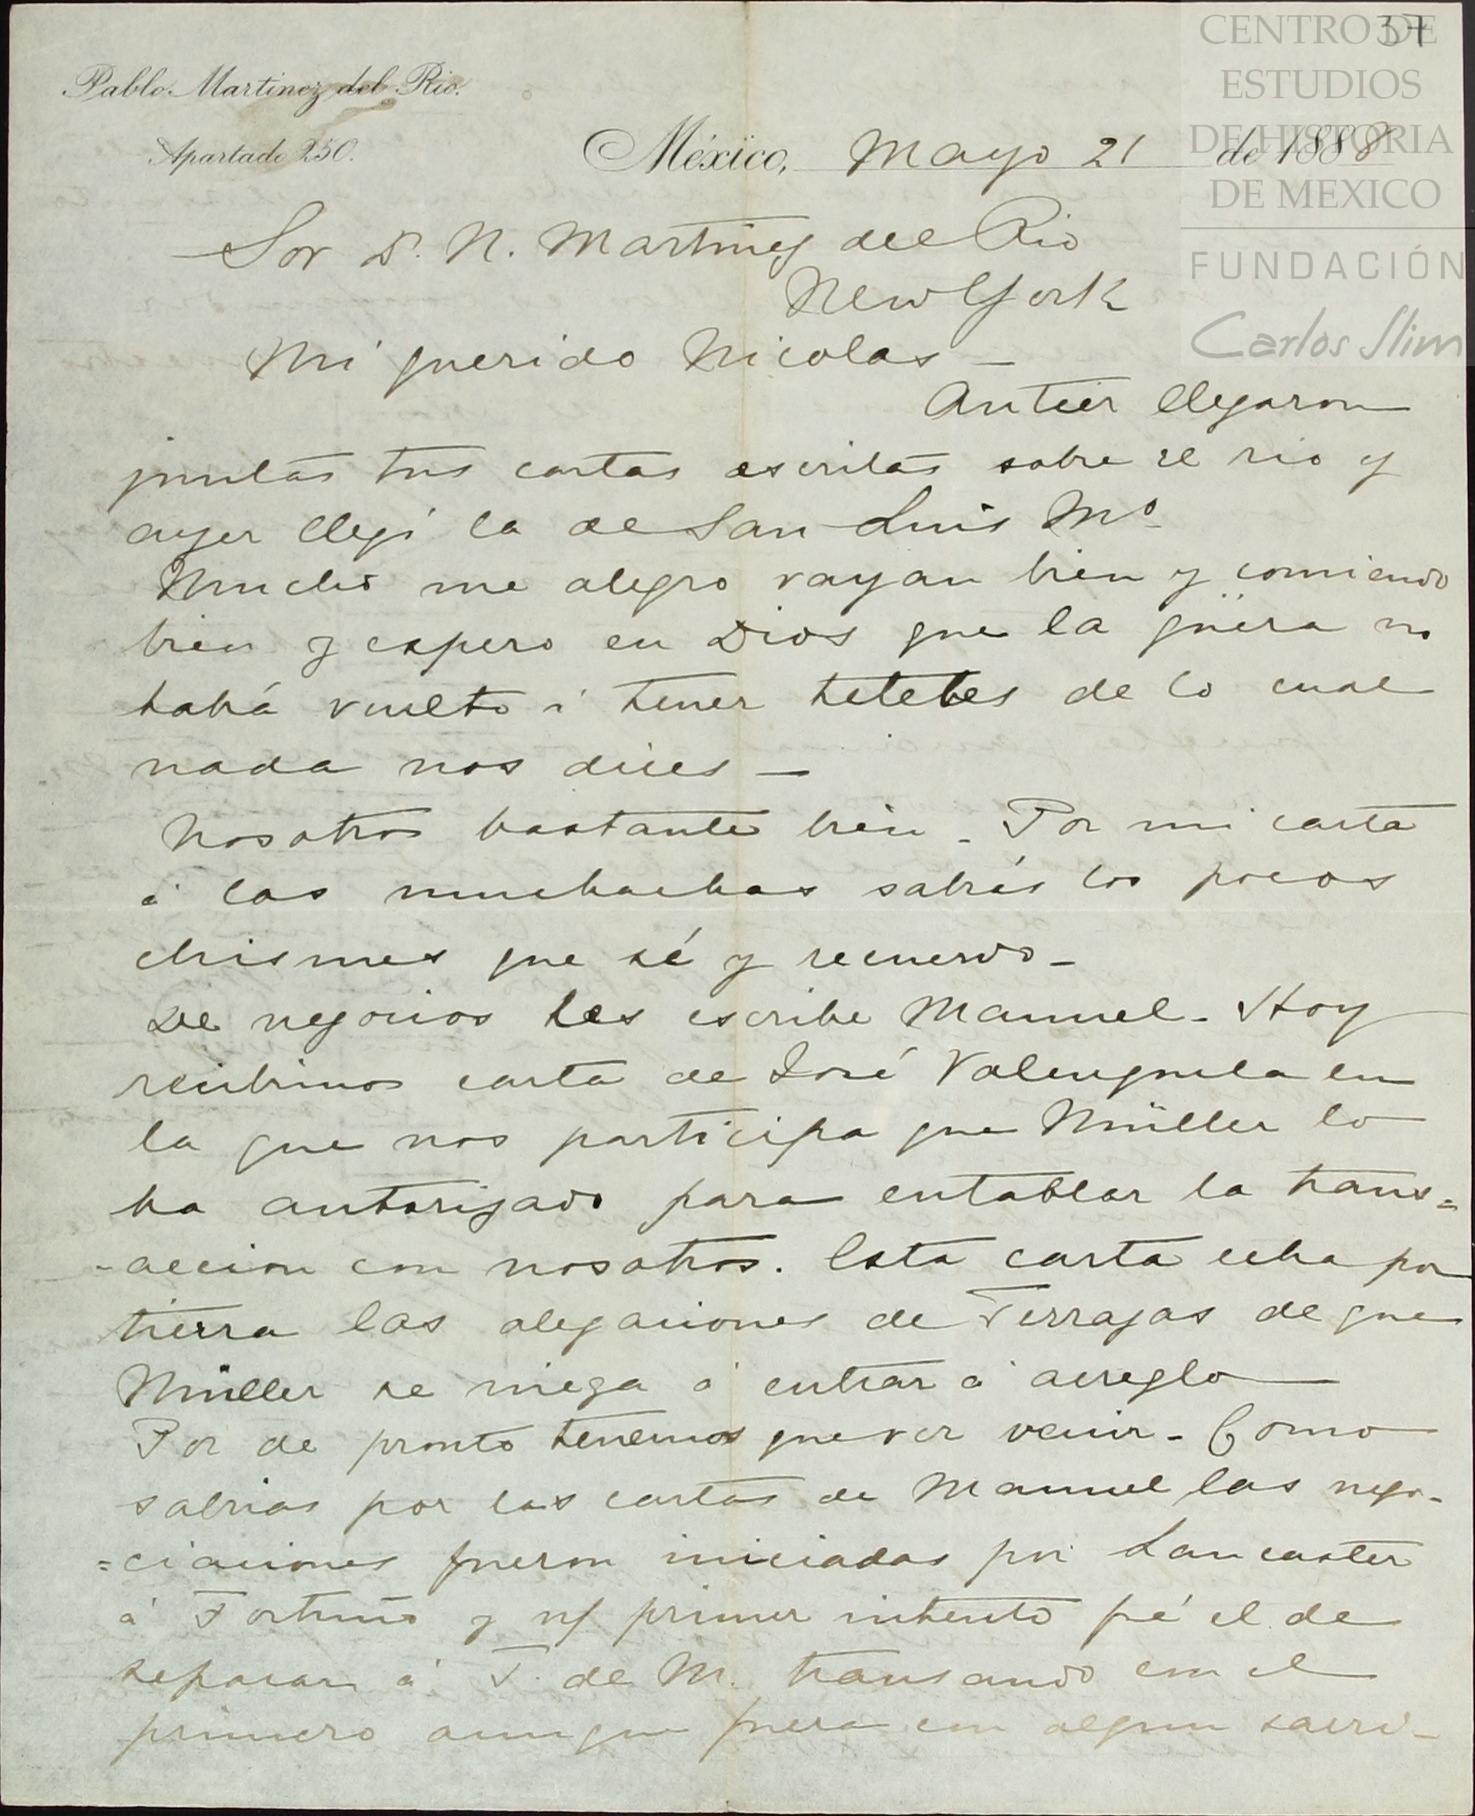 37
CENTRO DE
ESTUDIOS
DE HISTORIA
DE MEXICO
FUNDACIÓN
Carlos Slim
Pablo Martinez del Rio.
Apartado 250.
México, Mayo 21 de 1888
Sor D. N. Martinez del Rio
New York
Mi querido Nicolas –
Antier llegaron
juntas tus cartas escritas sobre el rio y
ayer llegó la de San Luis Mo
Mucho me alegro vayan bien y comiendo
bien y espero en Dios que la güera no
habrá vuelto á tener teleles de lo cual
nada nos dices –
Nosotros bastante bien – Por mi carta
á las muchachas sabrás los pocos
chismes que sé y recuerdo –
De negocios les escribe Manuel – Hoy
recibimos carta de José Valenzuela en
la que nos participa que Müller lo
ha autorizado para entablar la trans=
-accion con nosotros. Esta carta echa por
tierra las alegaciones de Terrazas de que
Müller se niega á entrar á arreglo
Por de pronto tenemos que ver venir – Como
sabrias por las cartas de Manuel las nego-
=ciaciones fueron iniciadas por Lancaster
á Fortuño y n/ primer intento fué el de
separar á T. de M. transando con el
primero aunque fuera con algun sacri-